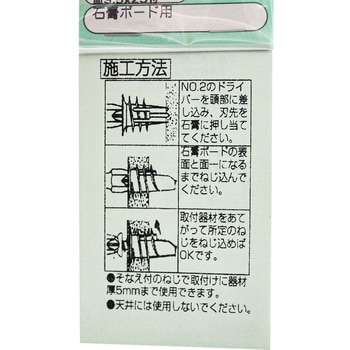 石膏ボード用
施工方法
NO.2のドライ
バーを頭部に差
し込み、刃先を
石膏に押し当て
てください。
石膏ボードの表
面と面一になる
までねじ込んで
ください。
取付器材をあて
がって所定のね
じをねじ込めば
OKです。
●そなえ付のねじで取付けに器材
厚5mmまで使用できます。
●天井には使用しないでください。